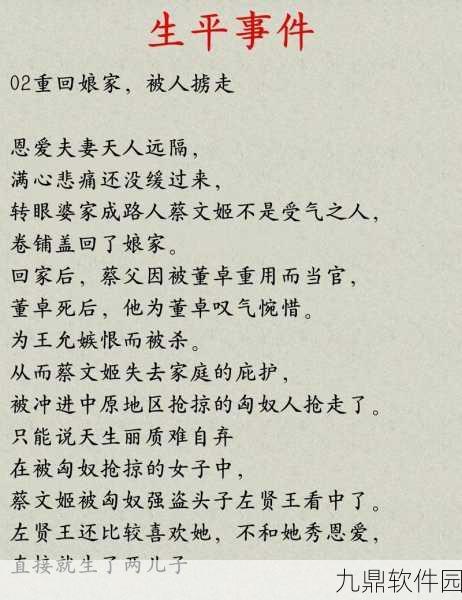 生平事件
02重回娘家，被人掳走
恩爱夫妻天人远隔，
满心悲痛还没缓过来，
转眼婆家成路人蔡文姬不是受气之人，
卷铺盖回了娘家。
回家后，蔡父因被董卓重用而当官，
董卓死后，他为董卓叹气惋惜。
为王允嫉恨而被杀。
从而蔡文姬失去家庭的庇护，
被冲进中原地区抢掠的匈奴人抢走了。
只能说天生丽质难自弃
在被匈奴抢掠的女子中，
蔡文姬被匈奴强盗头子左贤王看中了。
左贤王还比较喜欢她，不和她秀恩爱，
直接就生了两儿子
九鼎软件园